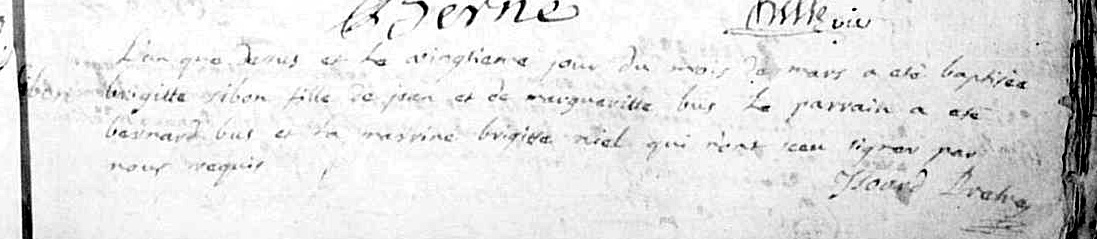 Berne vic
L'an que dessus et le vingtieme jour du mois de mars a eté baptisée
sibon brigitte sibon fille de jean et de margueritte bus le parrain a eté
bernard bus et la marrine brigitte niel qui n'ont sceu signer par
nous requis
Isoard Pretre